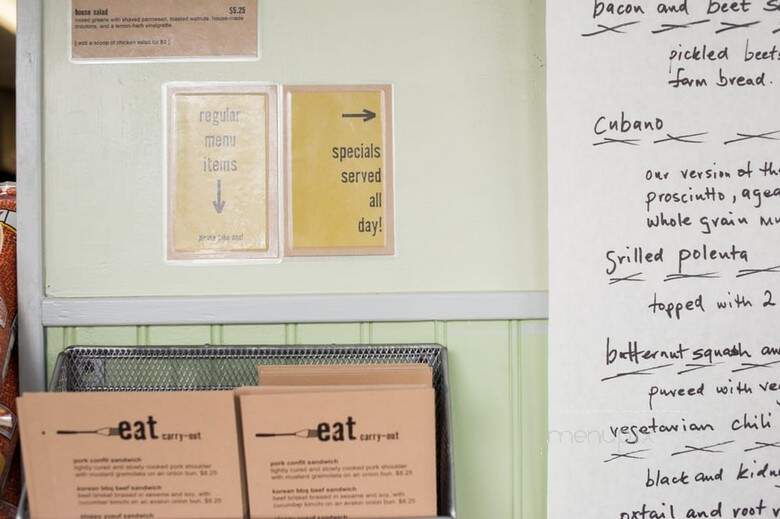 house salad $5.25
mixed greens with shaved parmesan, toasted walnuts, house-made
croutons, and a lemon-herb vinaigrette.
[ add a scoop of chicken salad for $3 ]
regular
menu
items
specials
served
all
day!
bacon and beet
pickled beets
farm bread.
Cubano
our version of th
prosciutto, aged
whole grain mu
grilled polenta
topped with 2
butternut squash an
pureed with ve
vegetarian chili
black and kidn
oxtail and root v
menupix
eat carry-out
pork confit sandwich
lightly cured and slowly cooked pork shoulder
with mustard gremolata on an onion bun. $8.25
korean bbq beef sandwich
beef brisket braised in sesame and soy, with
cucumber kimchi on an onion bun. $8.50
sloppy yusef sandwich
eat carry-out
pork confit sandwich
lightly cured and slowly cooked pork shoulder
with mustard gremolata on an onion bun. $8.25
korean bbq beef sandwich
beef brisket braised in sesame and soy, with
cucumber kimchi on an onion bun. $8.50